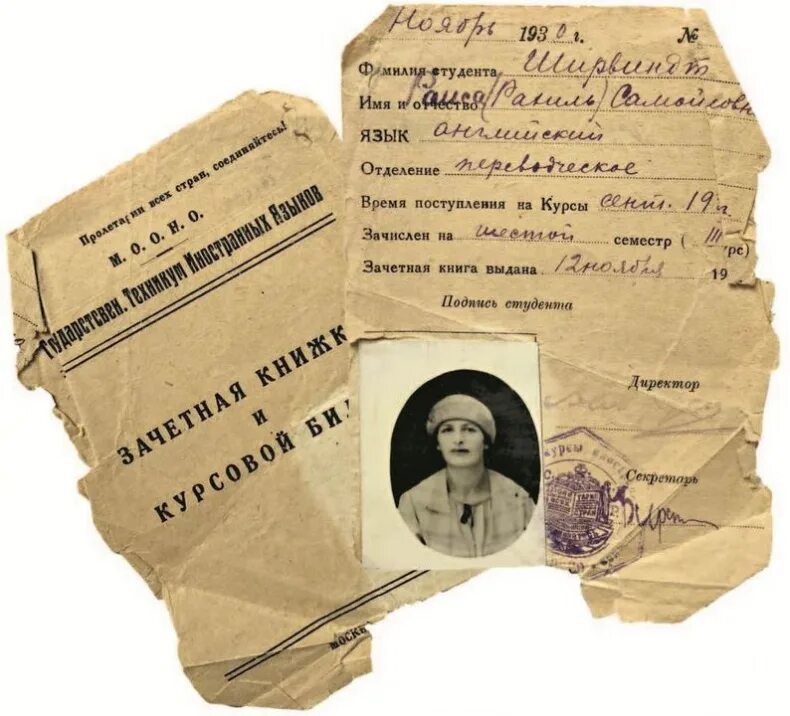 Пролетарии всех стран, соединяйтесь!
М. О. О. Н. О.
Государствен. Техникум Иностранных Языков
ЗАЧЕТНАЯ КНИЖК
И
КУРСОВОЙ БИЛ
МОСКВ
Ноябрь 1930 г. №
Фамилия студента Ширвиндт
Имя и отчество Раиса (Раниль) Самойловн
ЯЗЫК английский
Отделение переводческое
Время поступления на Курсы сент. 19 г
Зачислен на шестой семестр ( III курс)
Зачетная книга выдана 12 ноября 19
Подпись студента
Директор
Секретарь